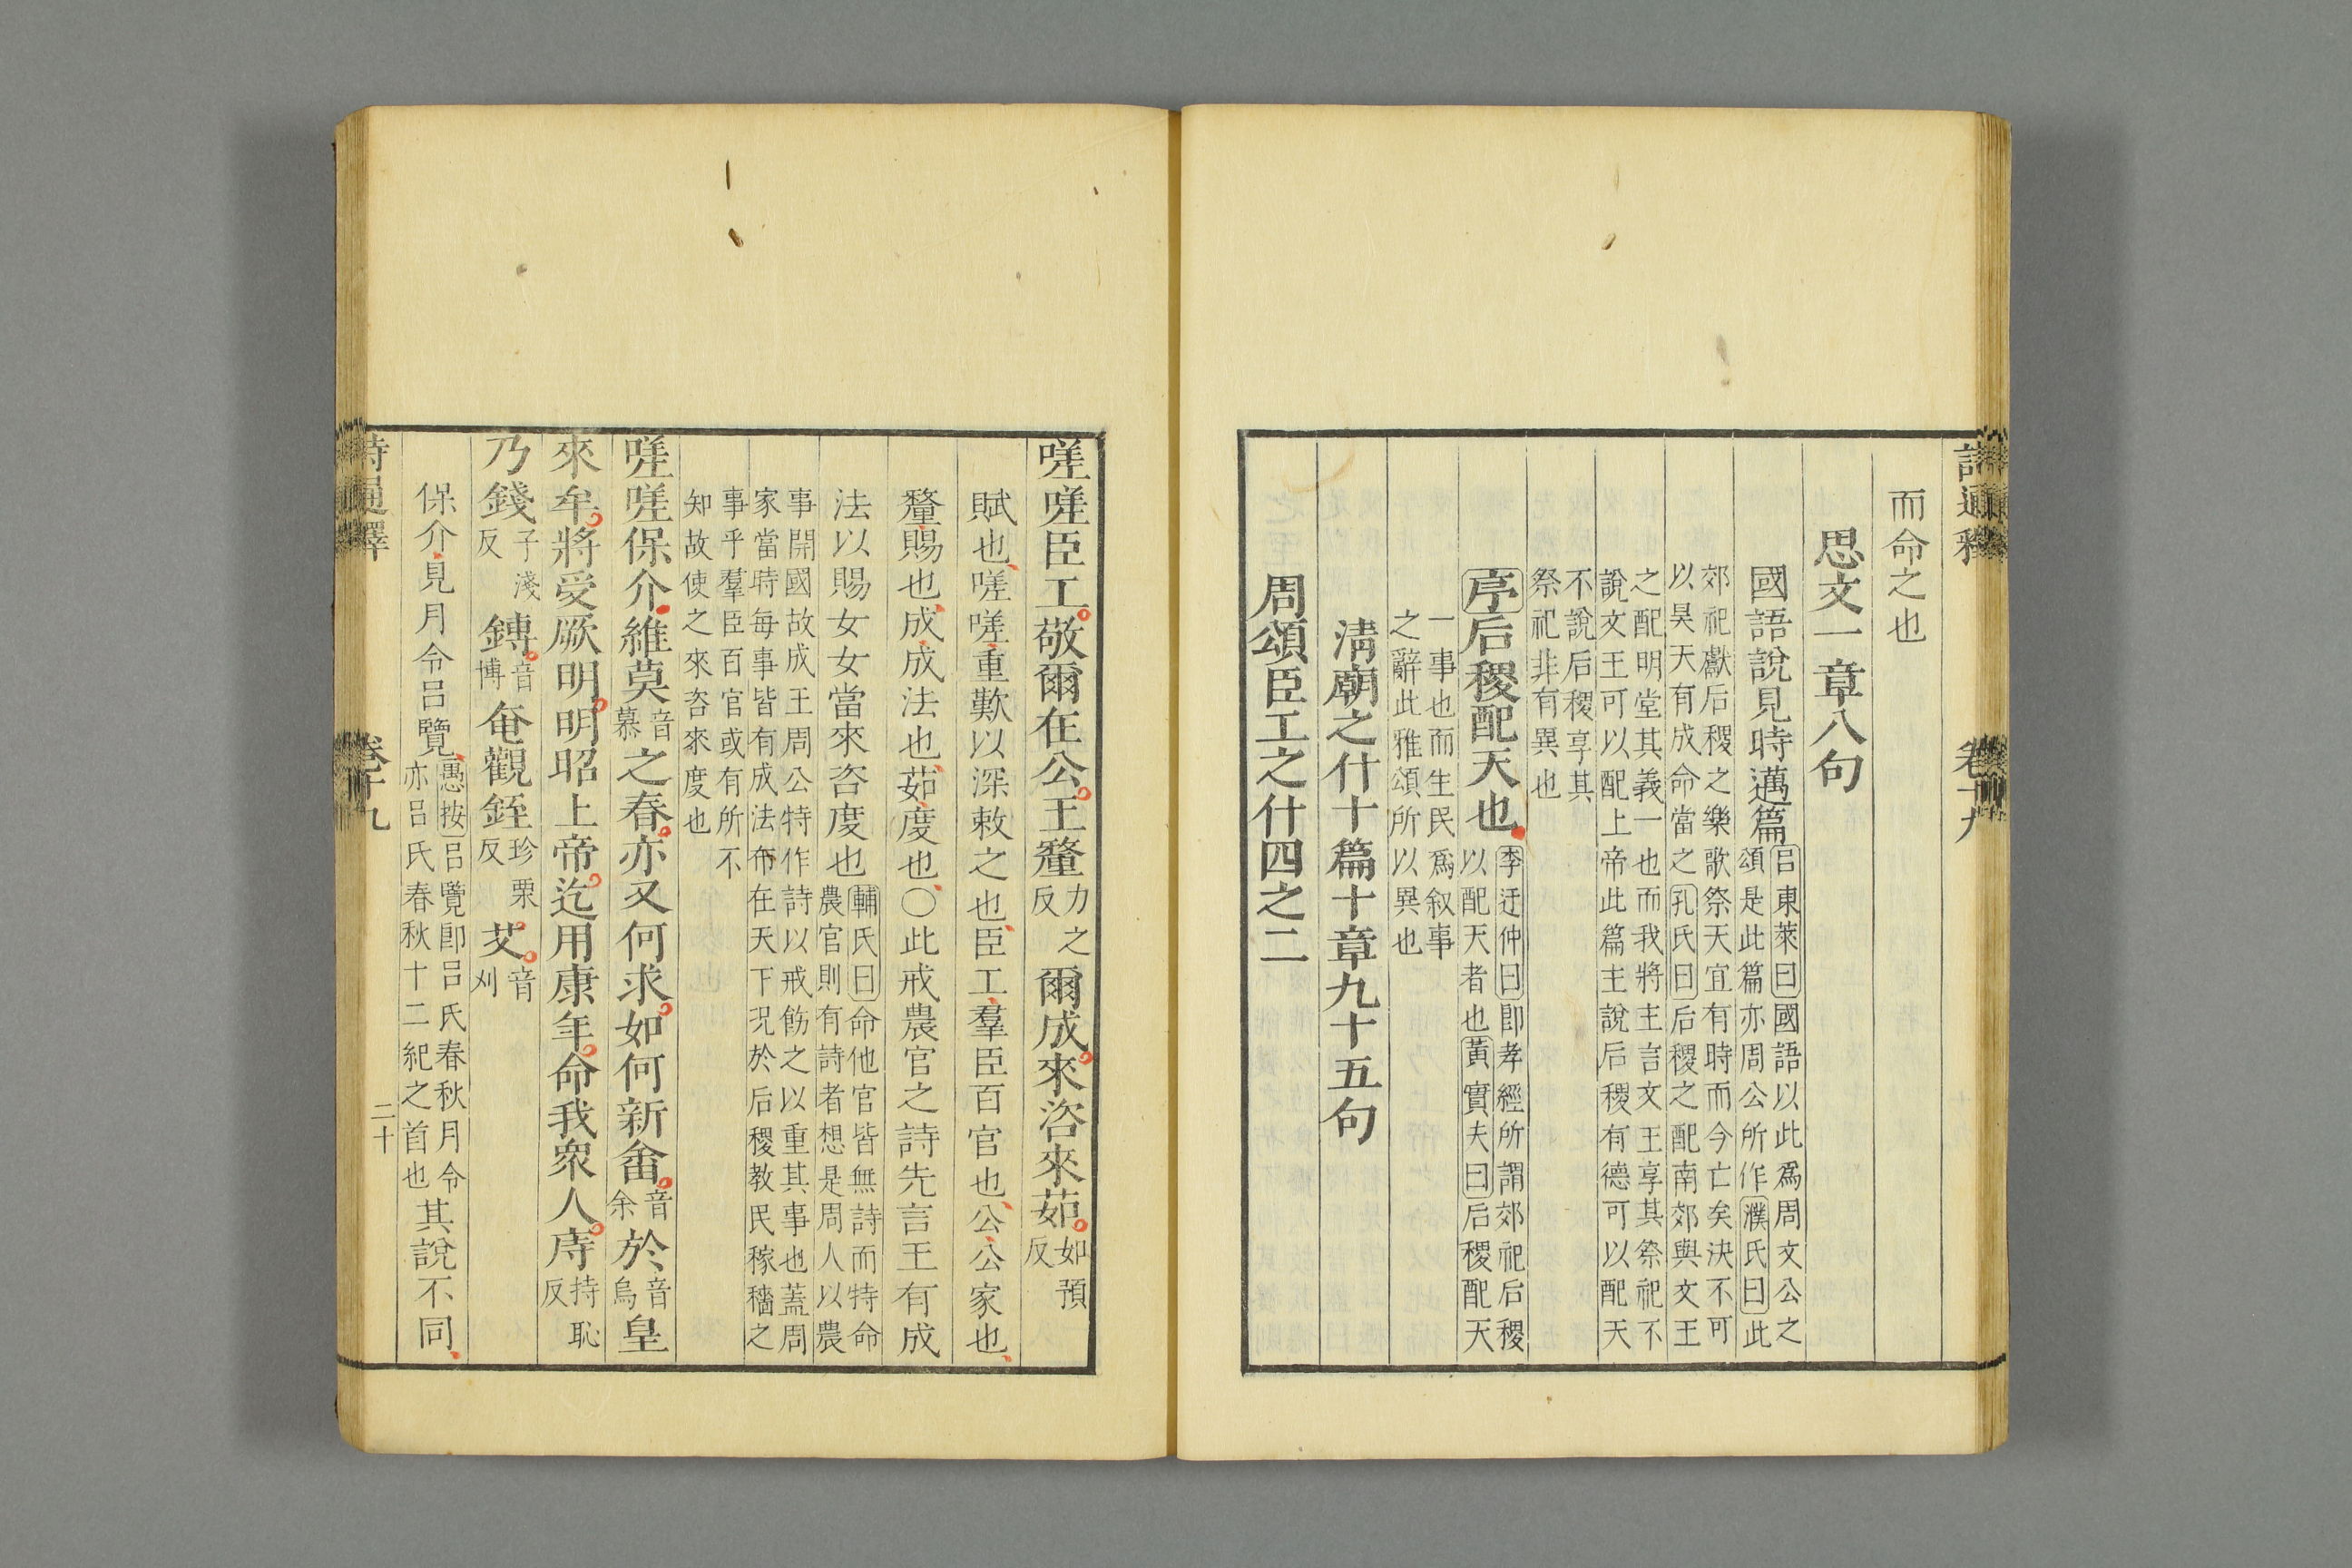 詩通釋 卷十九
而命之也
思文一章八句
國語說見時邁篇呂東萊曰國語以此爲周文公之頌是此篇亦周公所作濮氏曰此
郊祀獻后稷之樂歌祭天宜有時而今亡矣決不可以昊天有成命當之孔氏曰后稷之配南郊與文王
之配明堂其義一也而我將主言文王享其祭祀不說文王可以配上帝此篇主說后稷有德可以配天
不說后稷享其祭祀非有異也
序后稷配天也季迂仲曰卽孝經所謂郊祀后稷以配天者也黃實夫曰后稷配天
一事也而生民爲叙事之辭此雅頌所以異也
淸廟之什十篇十章九十五句
周頌臣工之什四之二
嗟嗟臣工敬爾在公王釐力之反爾成來咨來茹如預反
賦也嗟嗟重歎以深敕之也臣工羣臣百官也公公家也
釐賜也成成法也茹度也〇此戒農官之詩先言王有成
法以賜女女當來咨度也輔氏曰命他官皆無詩而特命農官則有詩者想是周人以農
事開國故成王周公特作詩以戒飭之以重其事也蓋周家當時每事皆有成法布在天下况於后稷教民稼穡之
事乎羣臣百官或有所不知故使之來咨來度也
嗟嗟保介維莫音慕之春亦又何求如何新畬音余於音烏皇
來牟將受厥明明昭上帝迄用康年命我衆人庤持恥反
乃錢子淺反鎛音博奄觀銍珍栗反艾音刈
保介見月令呂覽愚按呂覽卽呂氏春秋月令亦呂氏春秋十二紀之首也其說不同
詩通釋 卷十九 二十